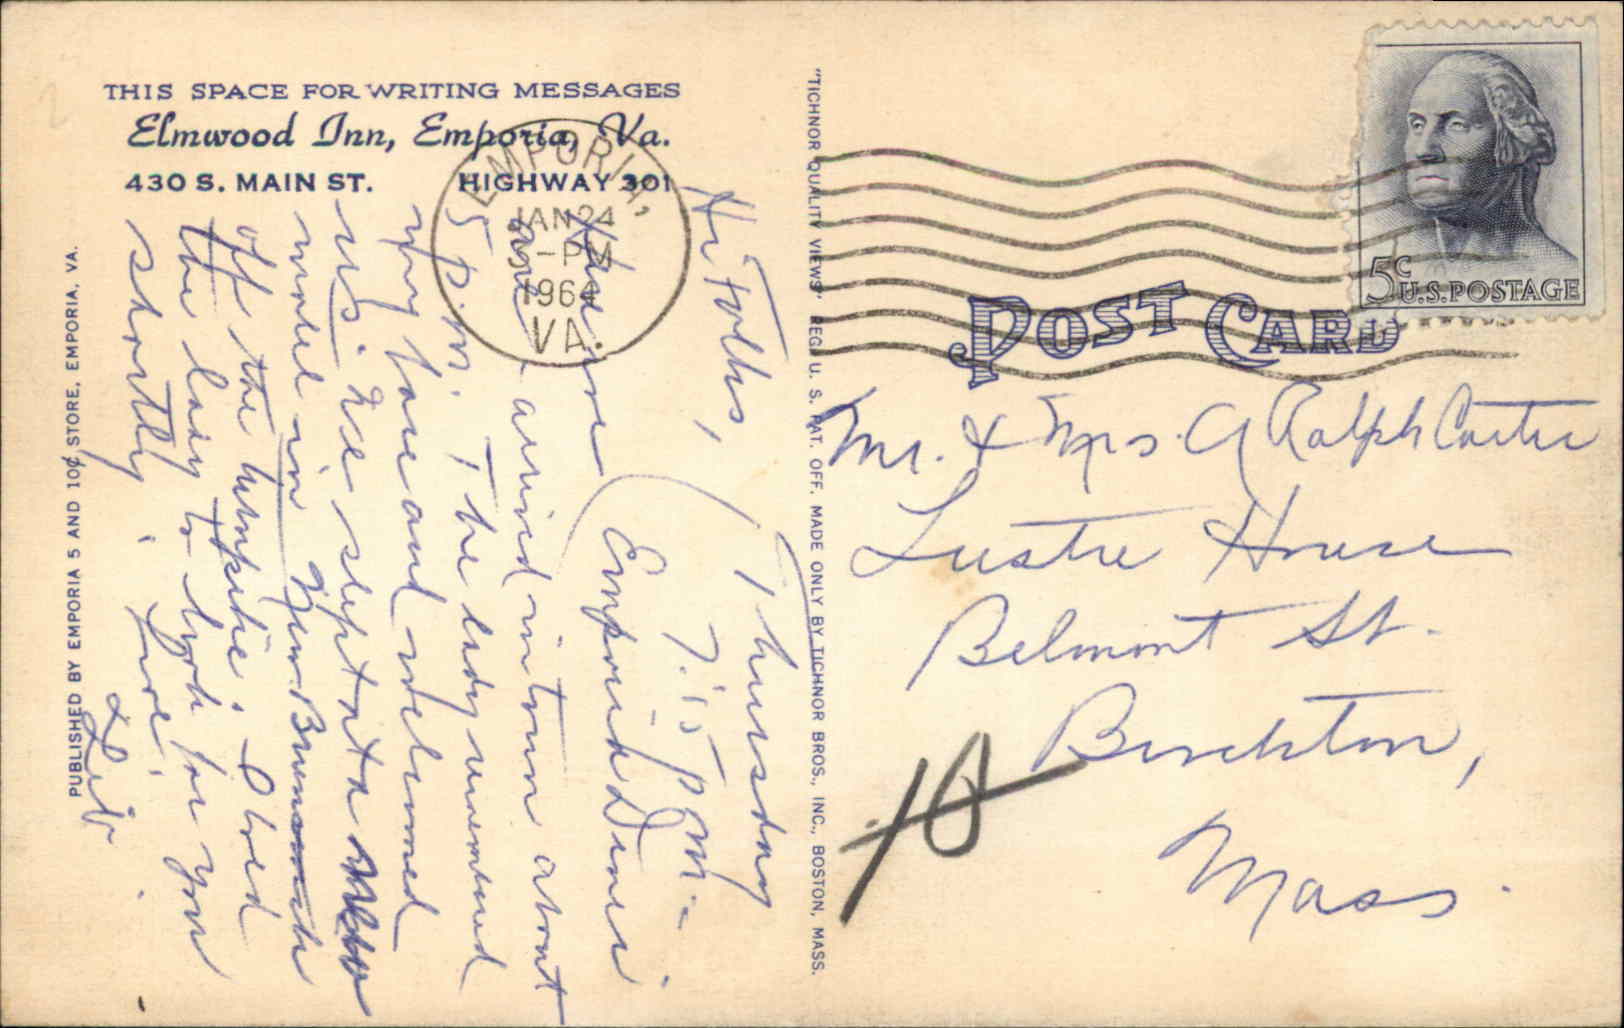 THIS SPACE FOR WRITING MESSAGES
Elmwood Inn, Emporia, Va.
430 S. MAIN ST. HIGHWAY 301
EMPORIA,
JAN 24
-PM
1964
VA.
PUBLISHED BY EMPORIA 5 AND 10¢ STORE, EMPORIA, VA.
"TICHNOR QUALITY VIEWS" REG. U. S. PAT. OFF. MADE ONLY BY TICHNOR BROS., INC., BOSTON, MASS.
5c
U.S. POSTAGE
POST CARD
Thursday
7:15 p.m.
Hi Folks,
Emporia Diner
Have
arrived in town about
5 p.m. The lady remembered
my face and welcomed
us. We slept at a
motel in New Brunswick
off the turnpike. I bed
the lady to for you
shortly.
Love,
& Lib.
Mr. & Mrs. A Ralph Carter
Lustre House
Belmont St.
Brockton,
Mass.
10